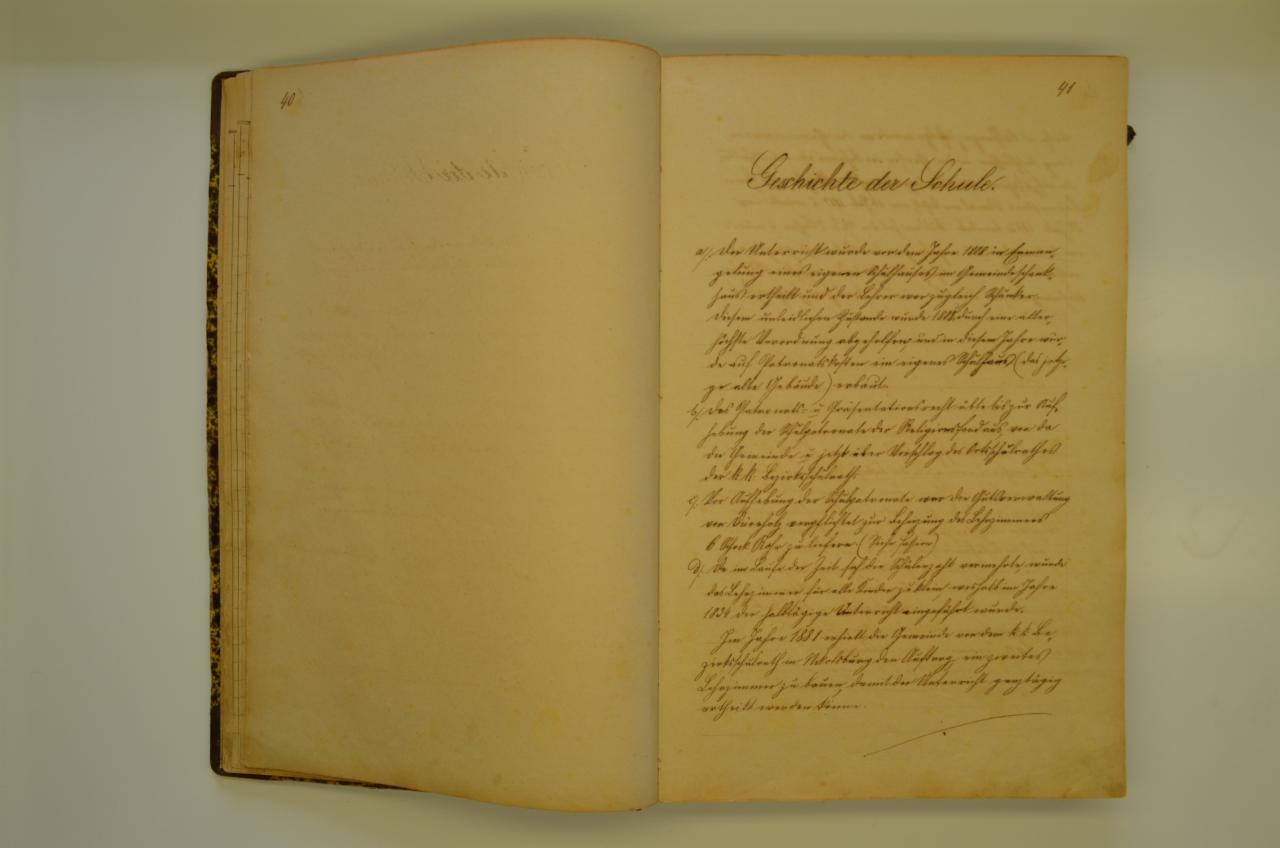 40
41
Geschichte der Schule.
a/. Der Unterricht wurde vor dem Jahre 1808 in Erman-
gelung eines eigenen Schulhauses im Gemeindeschank-
haus ertheilt und der Lehrer war zugleich Schänker.
Diesem unleidlichen Zustande wurde 1808 durch eine aller-
höchste Verordnung abgeholfen, und in diesem Jahre wur-
de auf Patronatskosten ein eigenes Schulhaus (das jetzi-
ge alte Gebäude) erbaut.
b/. Das Patronats- u Präsentationsrecht übte bis zur Auf-
hebung der Schulpatronate der Religionsfond aus, von da
die Gemeinde u jetzt über Vorschlag des Ortsschulrathes
der k. k. Bezirksschulrath.
c/. Vor Aufhebung der Schulpatronate war die Gutsverwaltung
von verpflichtet zur Beheizung des Lehrzimmers
6 Schock Rohr zu liefern. (Siehe)
d/. Da im Laufe der Zeit sich die Schülerzahl vermehrte, wurde
das Lehrzimmer für alle Kinder zu klein weshalb im Jahre
1834 der halbtägige Unterricht eingeführt wurde.
Im Jahre 1881 erhielt die Gemeinde von dem k. k. Be-
zirksschulrath in Nikolsburg den Auftrag, ein zweites
Lehrzimmer zu bauen, damit der Unterricht ganztägig
ertheilt werden könne.